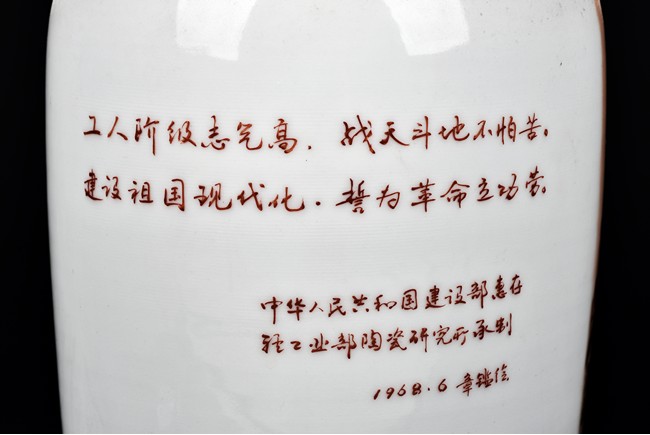 工人阶级志气高，战天斗地不怕苦。
建设祖国现代化，誓为革命立功劳。
中华人民共和国建设部惠存
轻工业部陶瓷研究所承制
1968.6 章鑑绘